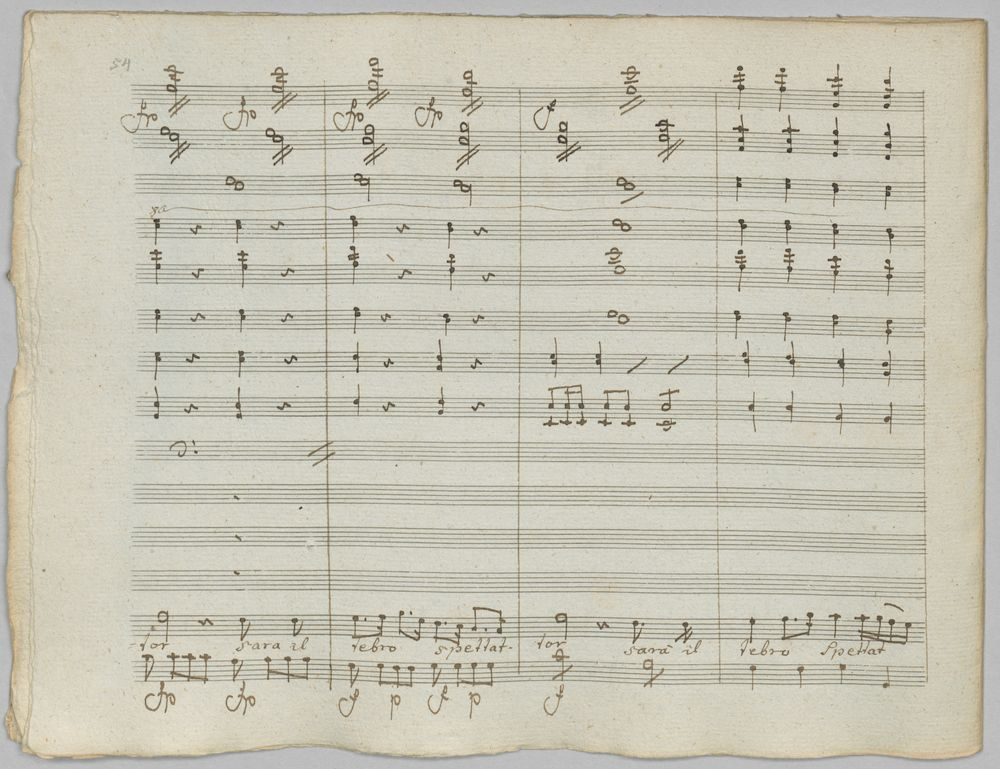 54
fp fp fp fp f
8a
-tor sara il tebro spettat- tor sara il tebro spettat
fp fp f p f p f